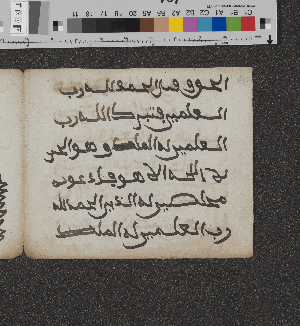 الحق وقيل الحمد لله رب
العلمين فتبرك الله رب
العلمين له الملك وهو الحى
لا اله الا هو فادعوه
مخلصين له الدين الحمد لله
رب العلمين له الملك